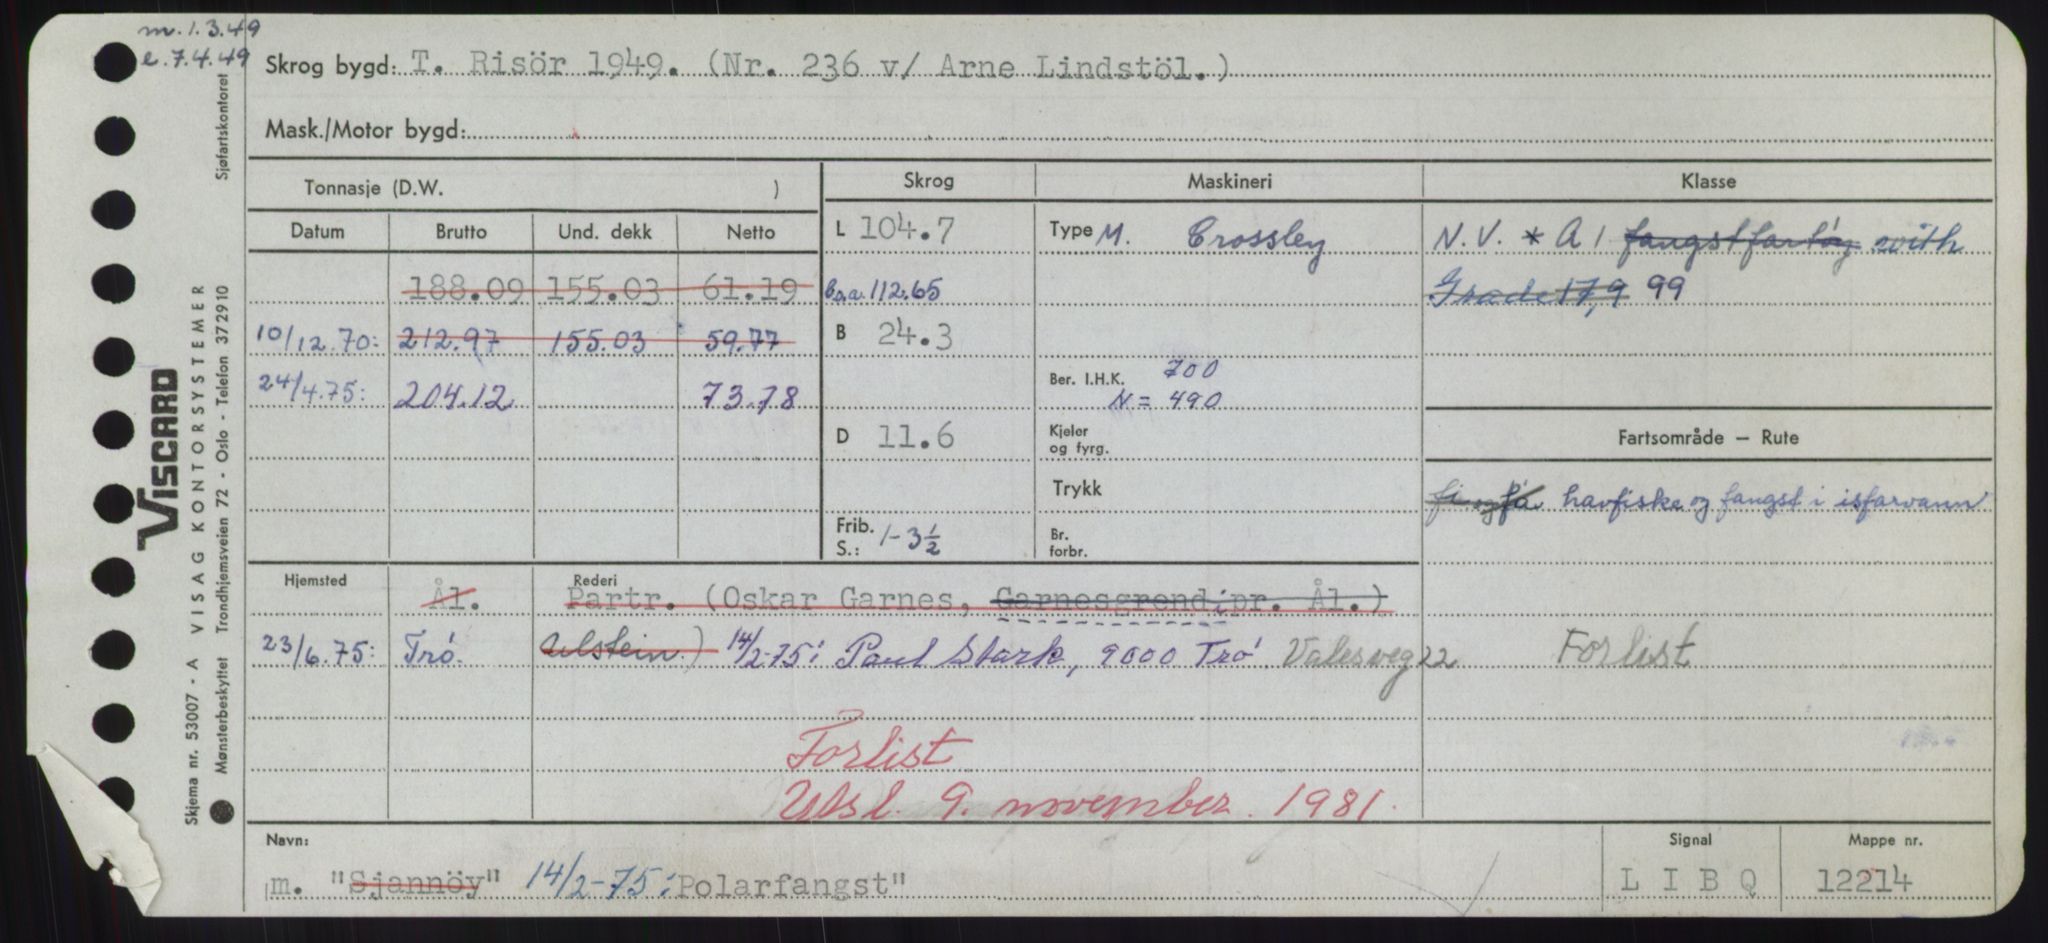 m. 1.3.49
e. 7.4.49
Skrog bygd: T. Risör 1949. (Nr. 236 v/ Arne Lindstöl.)
Mask./Motor bygd:
Tonnasje (D.W. )
Skrog
Maskineri
Klasse
Datum
Brutto
Und. dekk
Netto
L 104.7
Type M. Crossley
N.V. * A 1 fangstfartøy with
188.09 155.03 61.19
l.o.a. 112.65
Grade 17,9 99
10/12.70: 212.97 155.03 59.77
B 24.3
24/4.75: 204.12 73.78
Ber. I.H.K. 700
N = 490
D 11.6
Kjeler
og fyrg.
Fartsområde – Rute
Trykk
fi og få havfiske og fangst i isfarvann
Frib.
S.: 1-3½
Br.
forbr.
Hjemsted
Ål.
Rederi
Partr. (Oskar Garnes, Garnesgrend i pr. Ål.)
23/6.75: Trö.
Ulstein.) 14/2-75: Paul Stark, 9000 Trö Valesveg 22
Forlist
Forlist
Utsl. 9. november. 1981.
Navn:
m. "Sjannöy" 14/2-75: Polarfangst"
Signal
L I B Q
Mappe nr.
12214
Sjøfartskontoret
VISCARD
Skjema nr. 53007 - A VISAG KONTORSYSTEMER
Mønsterbeskyttet Trondhjemsveien 72 - Oslo - Telefon 372910